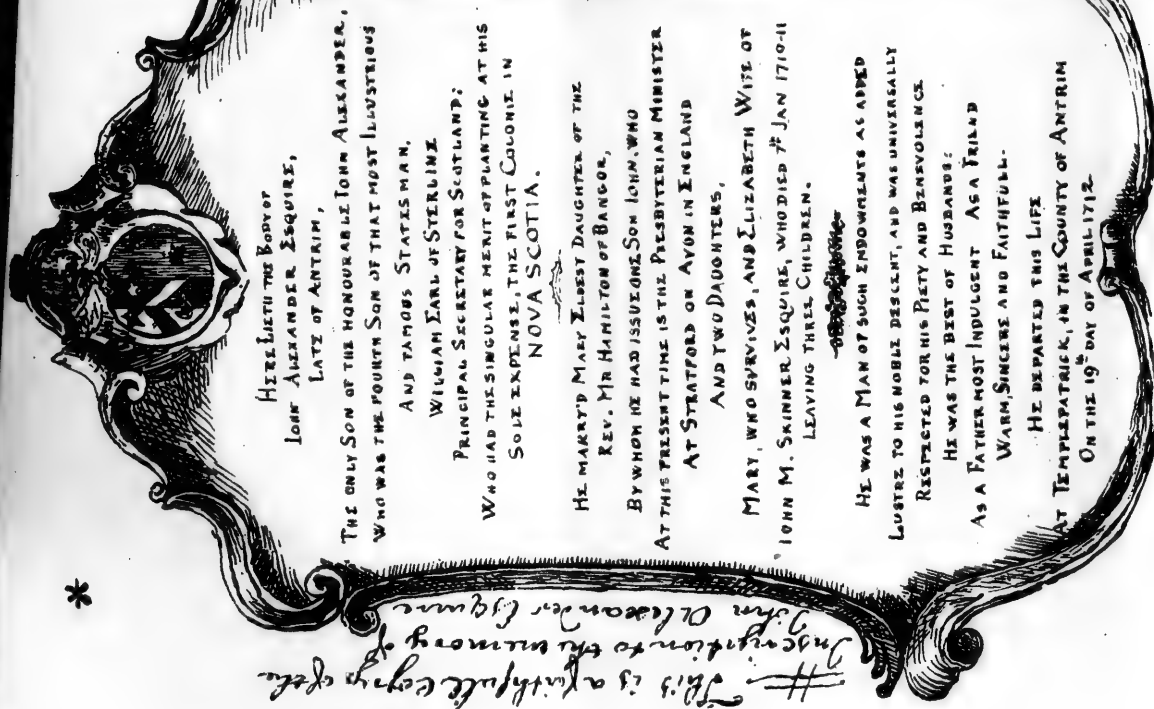 HERE LIETH THE BODY OF
IOHN ALEXANDER ESQUIRE,
LATE OF ANTRIM,
THE ONLY SON OF THE HONOURABLE IOHN ALEXANDER,
WHO WAS THE FOURTH SON OF THAT MOST ILLUSTRIOUS
AND FAMOUS STATESMAN,
WILLIAM EARL OF STERLINE
PRINCIPAL SECRETARY FOR SCOTLAND:
WHO HAD THE SINGULAR MERIT OF PLANTING AT HIS
SOLE EXPENSE, THE FIRST COLONIE IN
NOVA SCOTIA.
HE MARRY'D MARY ELDEST DAUGHTER OF THE
REV. MR HAMILTON OF BANGOR,
BY WHOM HE HAD ISSUE ONE SON IOHN, WHO
AT THIS PRESENT TIME IS THE PRESBYTERIAN MINISTER
AT STRATFORD ON AVON IN ENGLAND
AND TWO DAUGHTERS,
MARY, WHO SURVIVES, AND ELIZABETH WIFE OF
IOHN M. SKINNER ESQUIRE, WHO DIED 7th JAN 1710-11
LEAVING THREE CHILDREN.
HE WAS A MAN OF SUCH ENDOWMENTS AS ADDED
LUSTRE TO HIS NOBLE DESCENT, AND WAS UNIVERSALLY
RESPECTED FOR HIS PIETY AND BENEVOLENCE
HE WAS THE BEST OF HUSBANDS:
AS A FATHER MOST INDULGENT AS A FRIEND
WARM, SINCERE AND FAITHFULL.
HE DEPARTED THIS LIFE
AT TEMPLEPATRICK, IN THE COUNTY OF ANTRIM
ON THE 19th DAY OF APRIL 1712
*
# This is a faithfull Copy of the
Inscription to the memory of
John Alexander Esquire